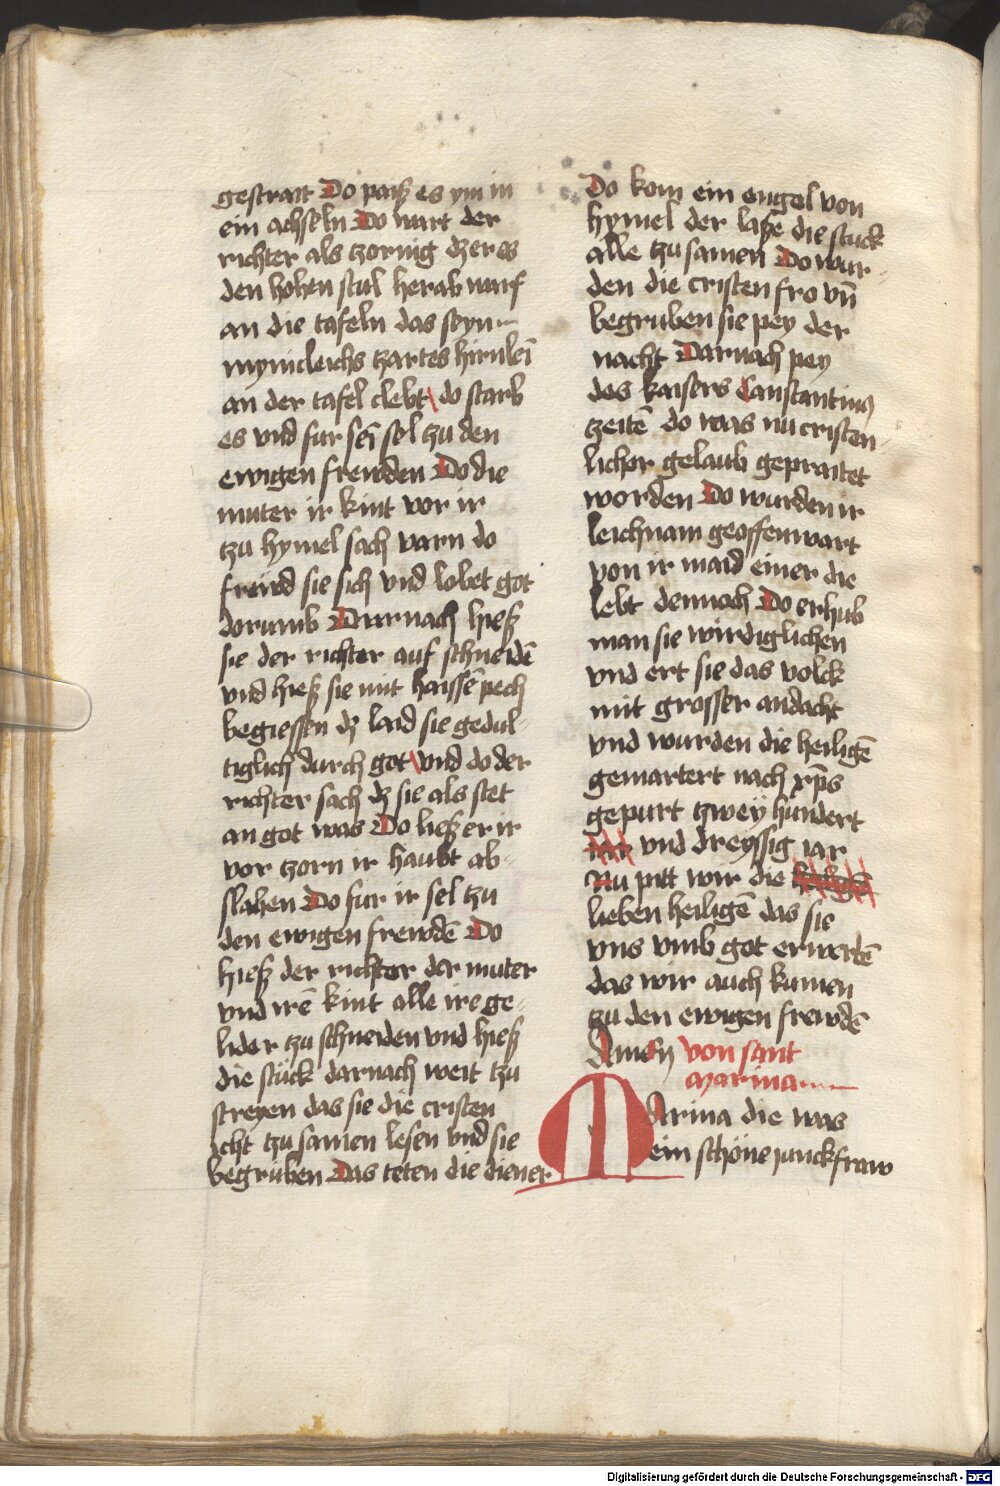 gestrait Do paiß es ym in
ein achseln Do wart der
richter als zornig dz er es
den hohen stul herab warf
an die tafeln das seyn
mynicleichs tzartes hirnleī
an der tafel clebt do starb
es vnd fur seī sel tzu den
ewigen frewden Do die
muter ir kint vor ir
tzu hymel sach varn do
frewd sie sich vnd lobet got
dorumb Darnach hieß
sie der richter auf schneidē
vnd hieß sie mit haissē pech
begiessen dz laid sie gedul-
tiglich durch got vnd do der
richter sach dz sie als stet
an got was Do ließ er ir
vor tzorn ir haubt ab-
slahen Do fur ir sel tzu
den ewigen frewdē Do
hieß der richter der muter
vnd irē kint alle ire ge-
lider tzu schneiden vnd hieß
die stück darnach weit tzu
streyen das sie die cristen
icht tzu samen lesen vnd sie
begruben Das teten die diener
Do kom ein engel von
hymel der lase die stuck
alle tzu samen Do wur-
den die cristen fro vn̄
begruben sie pey der
nacht Darnach pey
des kaisers Constantinus
tzeitē do was nu cristen-
licher gelaub gepraitet
worden Do wurden ir
leichnam geoffenwart
von ir maid einer die
lebt dennoch Do erhub
man sie wirdiglichen
vnd ert sie das volck
mit grosser andacht
vnd wurden die heiligē
gemartert nach xp̄s
gepurt tzwey hundert
iar vnd dreyssig iar
Nu pitt wir die heiligē
lieben heiligē das sie
vns vmb got erwerbē
das wir auch kumen
tzu den ewigen frewdē
Amen von sant
Marina
Marina die was
ein schöne junckfraw
Digitalisierung gefördert durch die Deutsche Forschungsgemeinschaft - DFG